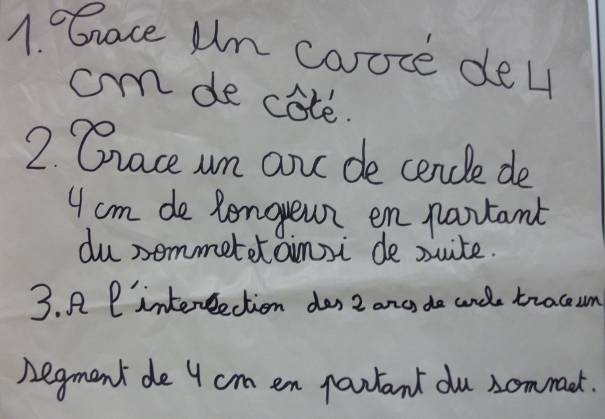 1. Trace un carré de 4
cm de côté.
2. Trace un arc de cercle de
4 cm de longueur en partant
du sommet et ainsi de suite.
3. A l'intersection des 2 arcs de cercle trace un
segment de 4 cm en partant du sommet.